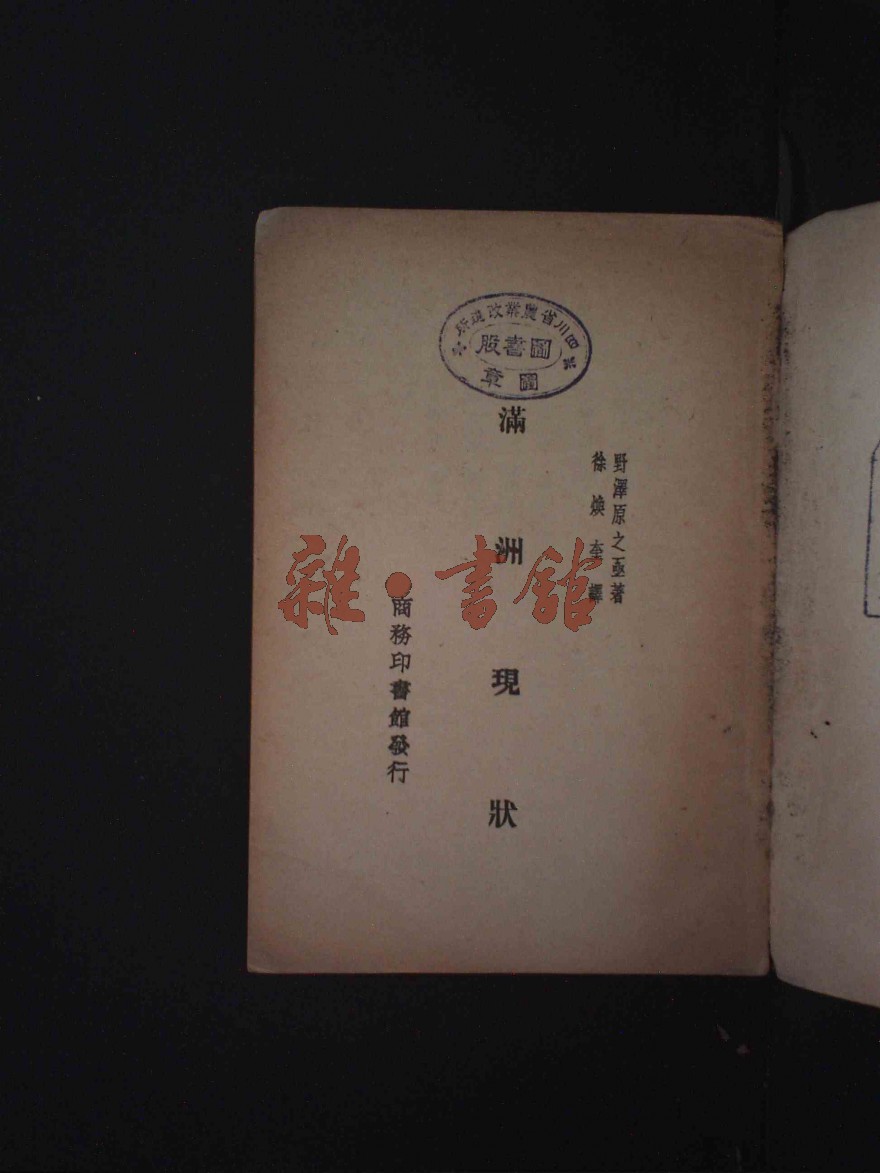 四川省農業改進所
圖書股
圖章
野澤原之亟著
徐煥奎譯
滿洲現狀
商務印書館發行
雜·書館